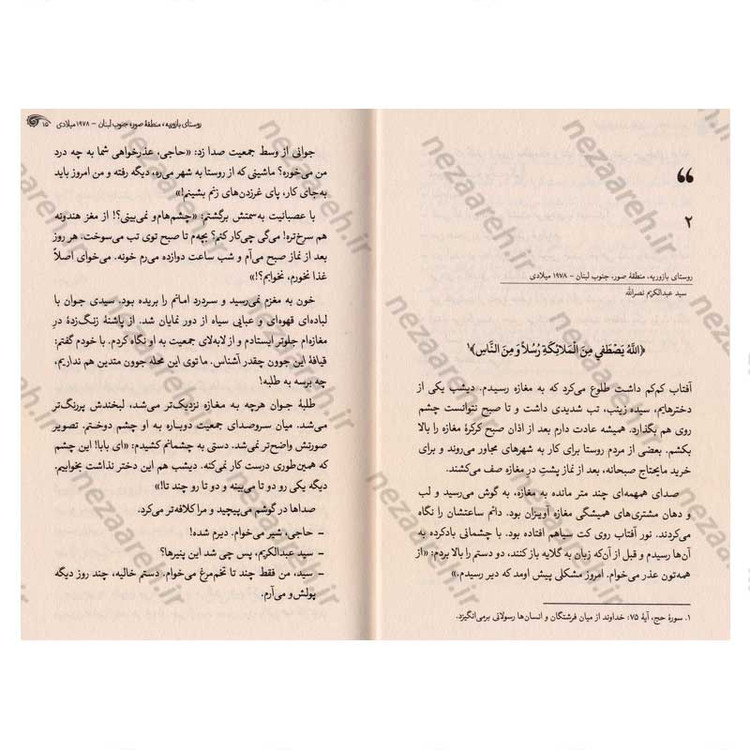 ❞
۲
روستای بازوریه، منطقهٔ صور، جنوب لبنان – ۱۹۷۸ میلادی
سید عبدالکریم نصرالله
﴿اللَّهُ يَصْطَفِي مِنَ الْمَلَائِكَةِ رُسُلاً وَمِنَ النَّاسِ﴾۱
آفتاب کم‌کم داشت طلوع می‌کرد که به مغازه رسیدم. دیشب یکی از
دخترهایم، سیده زینب، تب شدیدی داشت و تا صبح نتوانست چشم
روی هم بگذارد. همیشه عادت دارم بعد از اذان صبح کرکرهٔ مغازه را بالا
بکشم. بعضی از مردم روستا برای کار به شهرهای مجاور می‌روند و برای
خرید مایحتاج صبحانه، بعد از نماز پشتِ درِ مغازه صف می‌کشند.
صدای همهمه‌ای چند متر مانده به مغازه، به گوش می‌رسید و لب
و دهان مشتری‌های همیشگی مغازه آویزان بود. دائم ساعتشان را نگاه
می‌کردند. نور آفتاب روی کت سیاهم افتاده بود. با چشمانی بادکرده به
آن‌ها رسیدم و قبل از آن‌که زبان به گلایه باز کنند، دو دستم را بالا بردم: «از
همه‌تون عذر می‌خوام. امروز مشکلی پیش اومد که دیر رسیدم.»
۱. سورهٔ حج، آیهٔ ۷۵: خداوند از میان فرشتگان و انسان‌ها رسولانی برمی‌انگیزد.
روستای بازوریه، منطقهٔ صور، جنوب لبنان – ۱۹۷۸ میلادی ۱۵
جوانی از وسط جمعیت صدا زد: «حاجی، عذرخواهی شما به چه درد
من می‌خوره؟ ماشینی که از روستا به شهر می‌ره، دیگه رفته و من امروز باید
به‌جای کار، پای غرزدن‌های زنم بشینم!»
با عصبانیت به‌سمتش برگشتم: «چشم‌هام و نمی‌بینی؟! از مغز هندونه
هم سرخ‌تره! می‌گی چی‌کار کنم؟ بچه‌م تا صبح توی تب می‌سوخت. هر روز
بعد از نماز صبح می‌آم و شب ساعت دوازده می‌رم خونه. می‌خوای اصلاً
غذا نخورم، نخوابم؟!»
خون به مغزم نمی‌رسید و سردرد امانم را بریده بود. سیدی جوان با
لباده‌ای قهوه‌ای و عبایی سیاه از دور نمایان شد. از پاشنهٔ زنگ‌زدهٔ درِ
مغازه‌ام جلوتر ایستادم و از لابه‌لای جمعیت به او نگاه کردم. با خودم گفتم:
قیافهٔ این جوون چقدر آشناس. ما توی این محله جوون متدین هم نداریم،
چه برسه به طلبه!
طلبهٔ جوان هرچه به مغازه نزدیک‌تر می‌شد، لبخندش پررنگ‌تر
می‌شد. میان سروصدای جمعیت دوباره به او چشم دوختم. تصویر
صورتش واضح‌تر نمی‌شد. دستی به چشمانم کشیدم: «ای بابا! این چشم
که همین‌طوری درست کار نمی‌کنه. دیشب هم این دختر نذاشت بخوابیم.
دیگه یکی رو دو تا می‌بینه و دو تا رو چند تا!»
صداها در گوشم می‌پیچید و مرا کلافه‌تر می‌کرد.
– حاجی، شیر می‌خوام. دیرم شده!
– سید عبدالکریم، پس چی شد این پنیرها؟
– سید، من فقط چند تا تخم‌مرغ می‌خوام. دستم خالیه، چند روز دیگه
پولش و می‌آرم.
nezaareh.ir